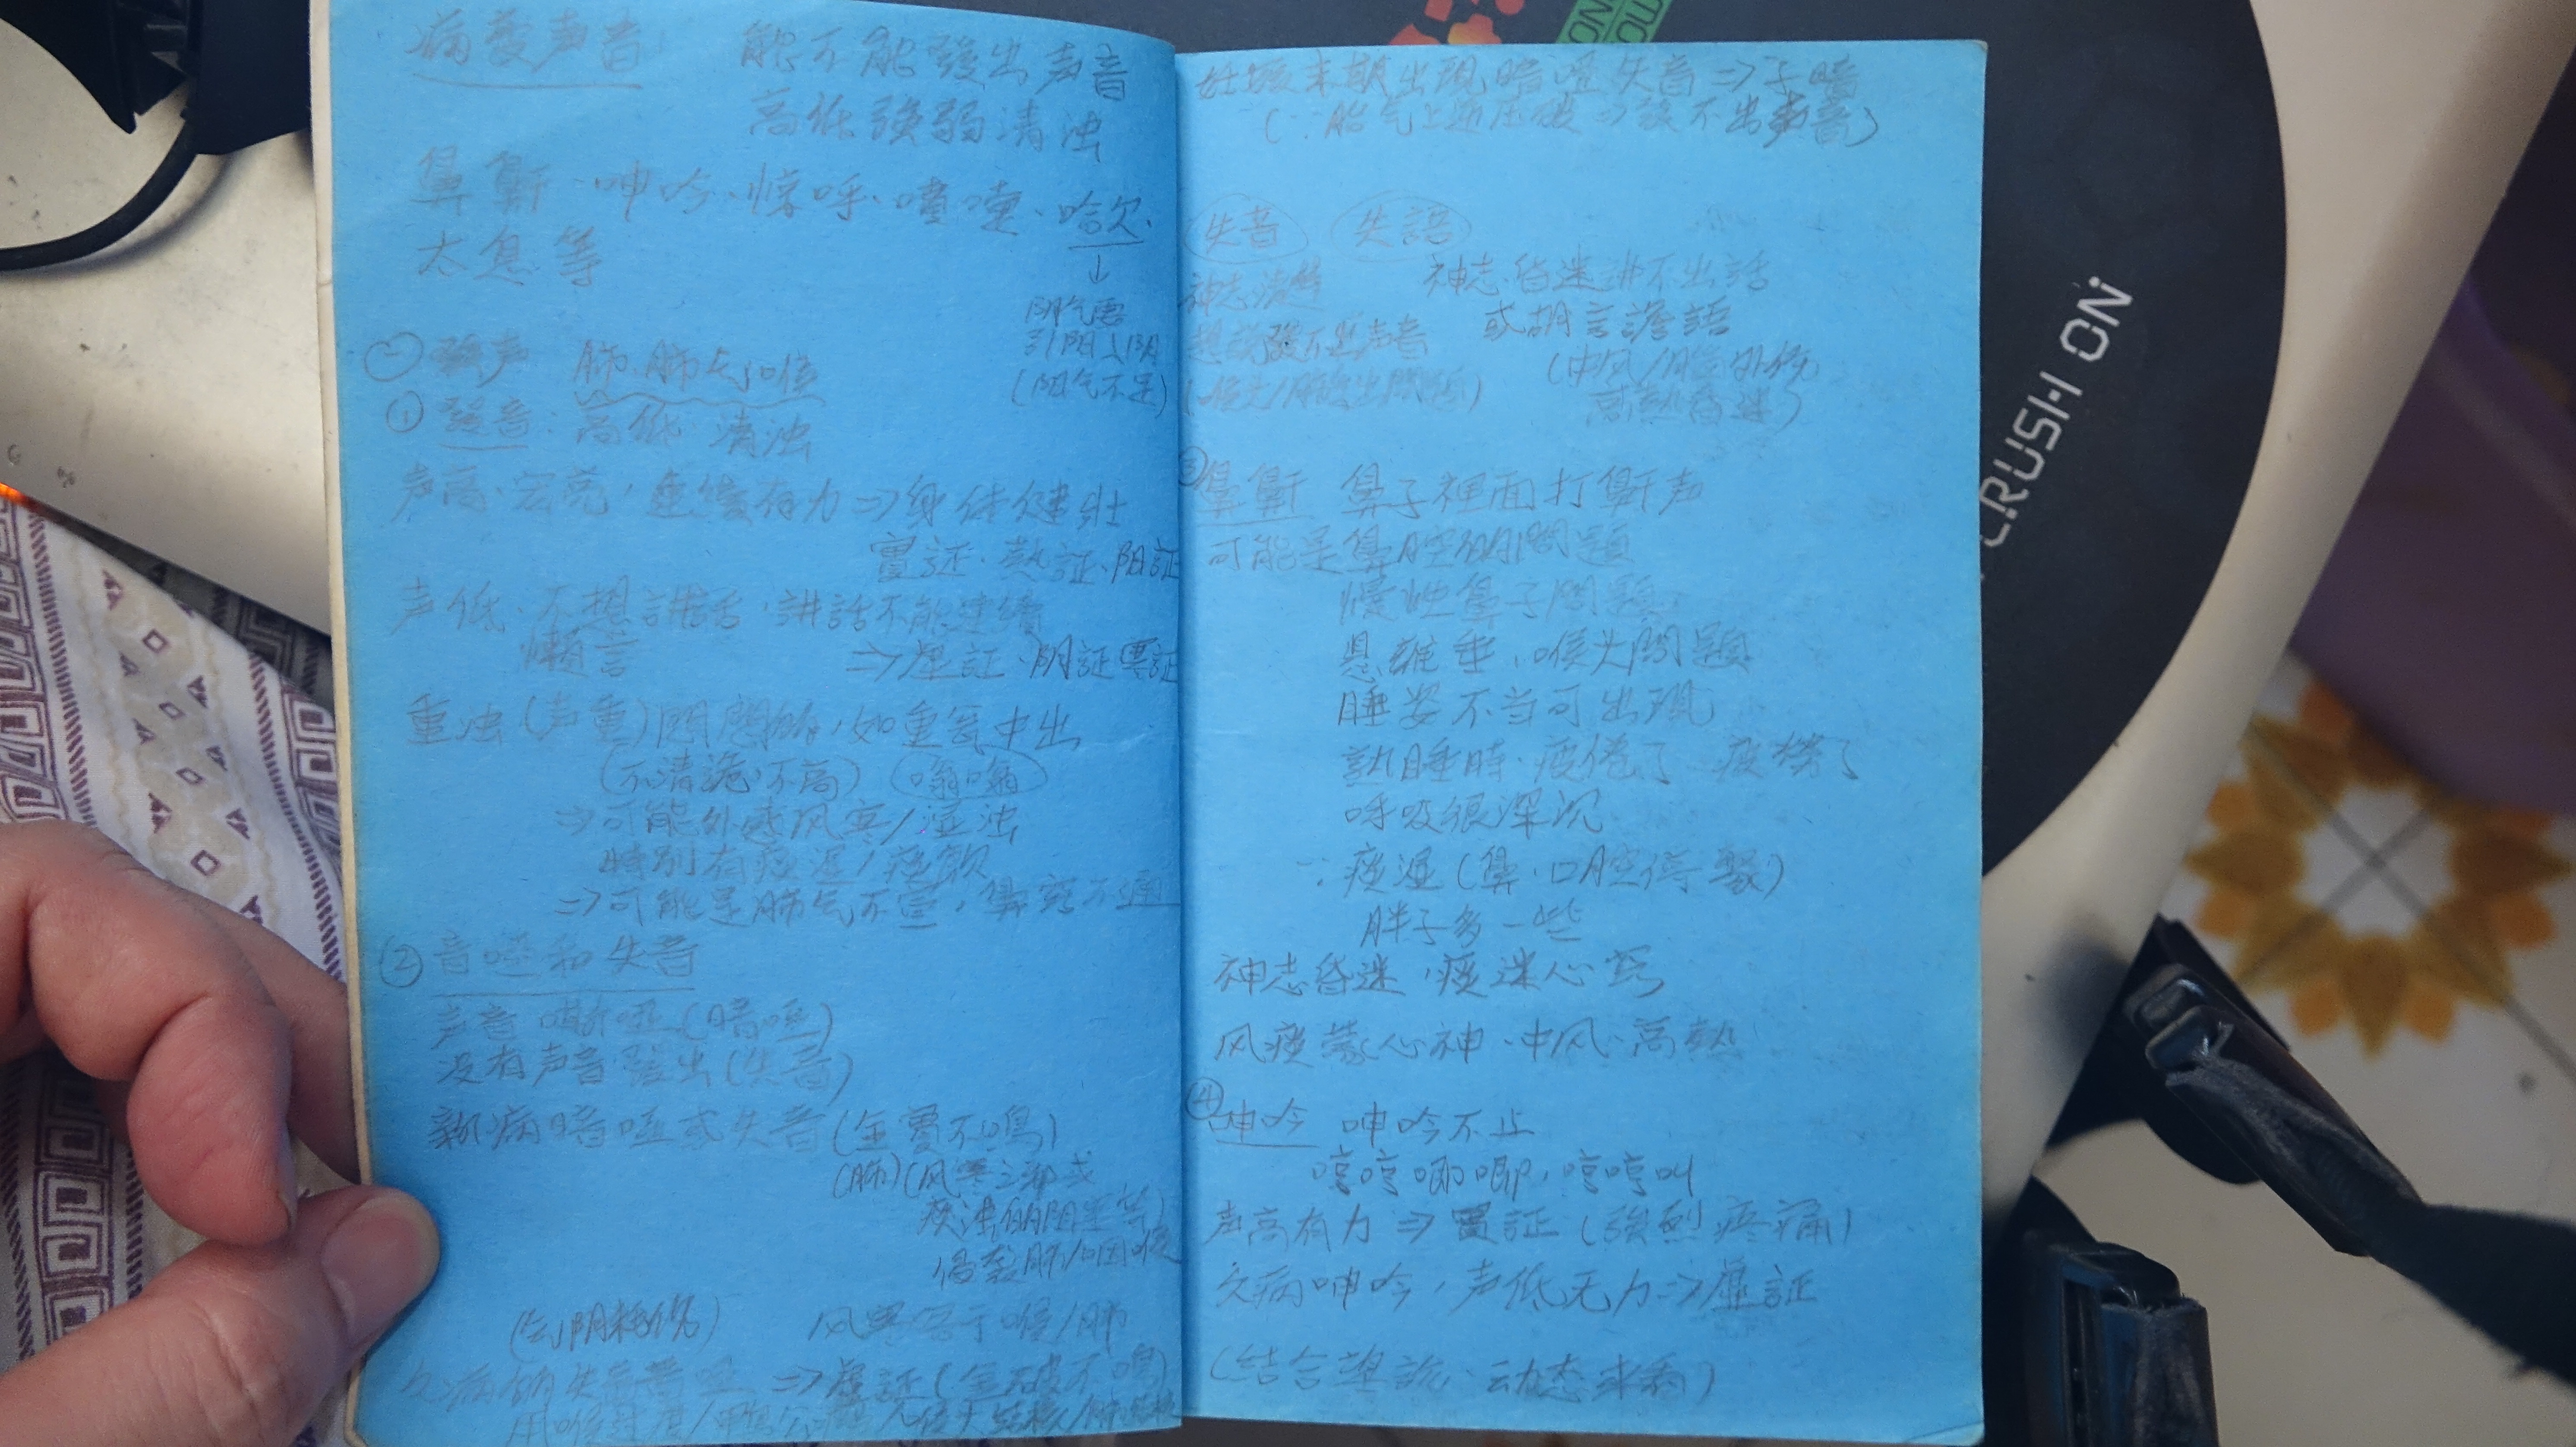 病変声音 能不能發出声音
高低強弱清浊
鼻鼾·呻吟·惊呼·噴嚏·哈欠·
太息等
↓
阴气要
引阳入阴
(阳气不足)
㊀ 發声 肺·肺气·喉
① 發音:高低·清浊
声高·宏亮,連續有力⇒身体健壯
實証·熱証·阳証
声低·不想講話·讲話不能連續
懶言 ⇒虛証·阴証·
重浊(声重)悶悶的,如重瓮中出
(不清 不高) 嗡嗡
⇒可能外感风寒/湿浊
特別有痰湿/痰飲
⇒可能是肺气不宣,鼻窍不通
② 音啞和失音
声音嘶啞(喑啞)
没有声音發出(失音)
新病喑啞或失音(金實不鳴)
(肺)(风寒之邪或
痰浊的阻塞等)
侵袭肺/咽喉
(气阴耗伤) 风寒客于喉/肺
久病的失音 ⇒虛証(金破不鳴)
用喉过度/ 結核
妊娠末期出現喑啞失音⇒子喑
(∵胎气上逆压破⇒發不出声音)
失音 失語
神志清楚 神志·昏迷讲不出話
想說發不出声音 或胡言譫語
(喉头/ 出問題) (中风/脑外伤
高熱昏迷)
③ 鼻鼾 鼻子裡面打鼾声
可能是鼻腔的問題
慢性鼻子問題
悬雍垂、喉头問題
睡姿不当可出現
熟睡時·疲倦了
呼吸很深沉
∵痰湿(鼻·口腔停聚)
胖子多一些
神志昏迷,痰迷心窍
风痰蒙心神·中风·高熱
④ 呻吟 呻吟不止
哼哼唧唧,哼哼叫
声高有力⇒實証(強烈疼痛)
久病呻吟,声低无力⇒虛証
(结合望診·动态来看)
CRUSH ON